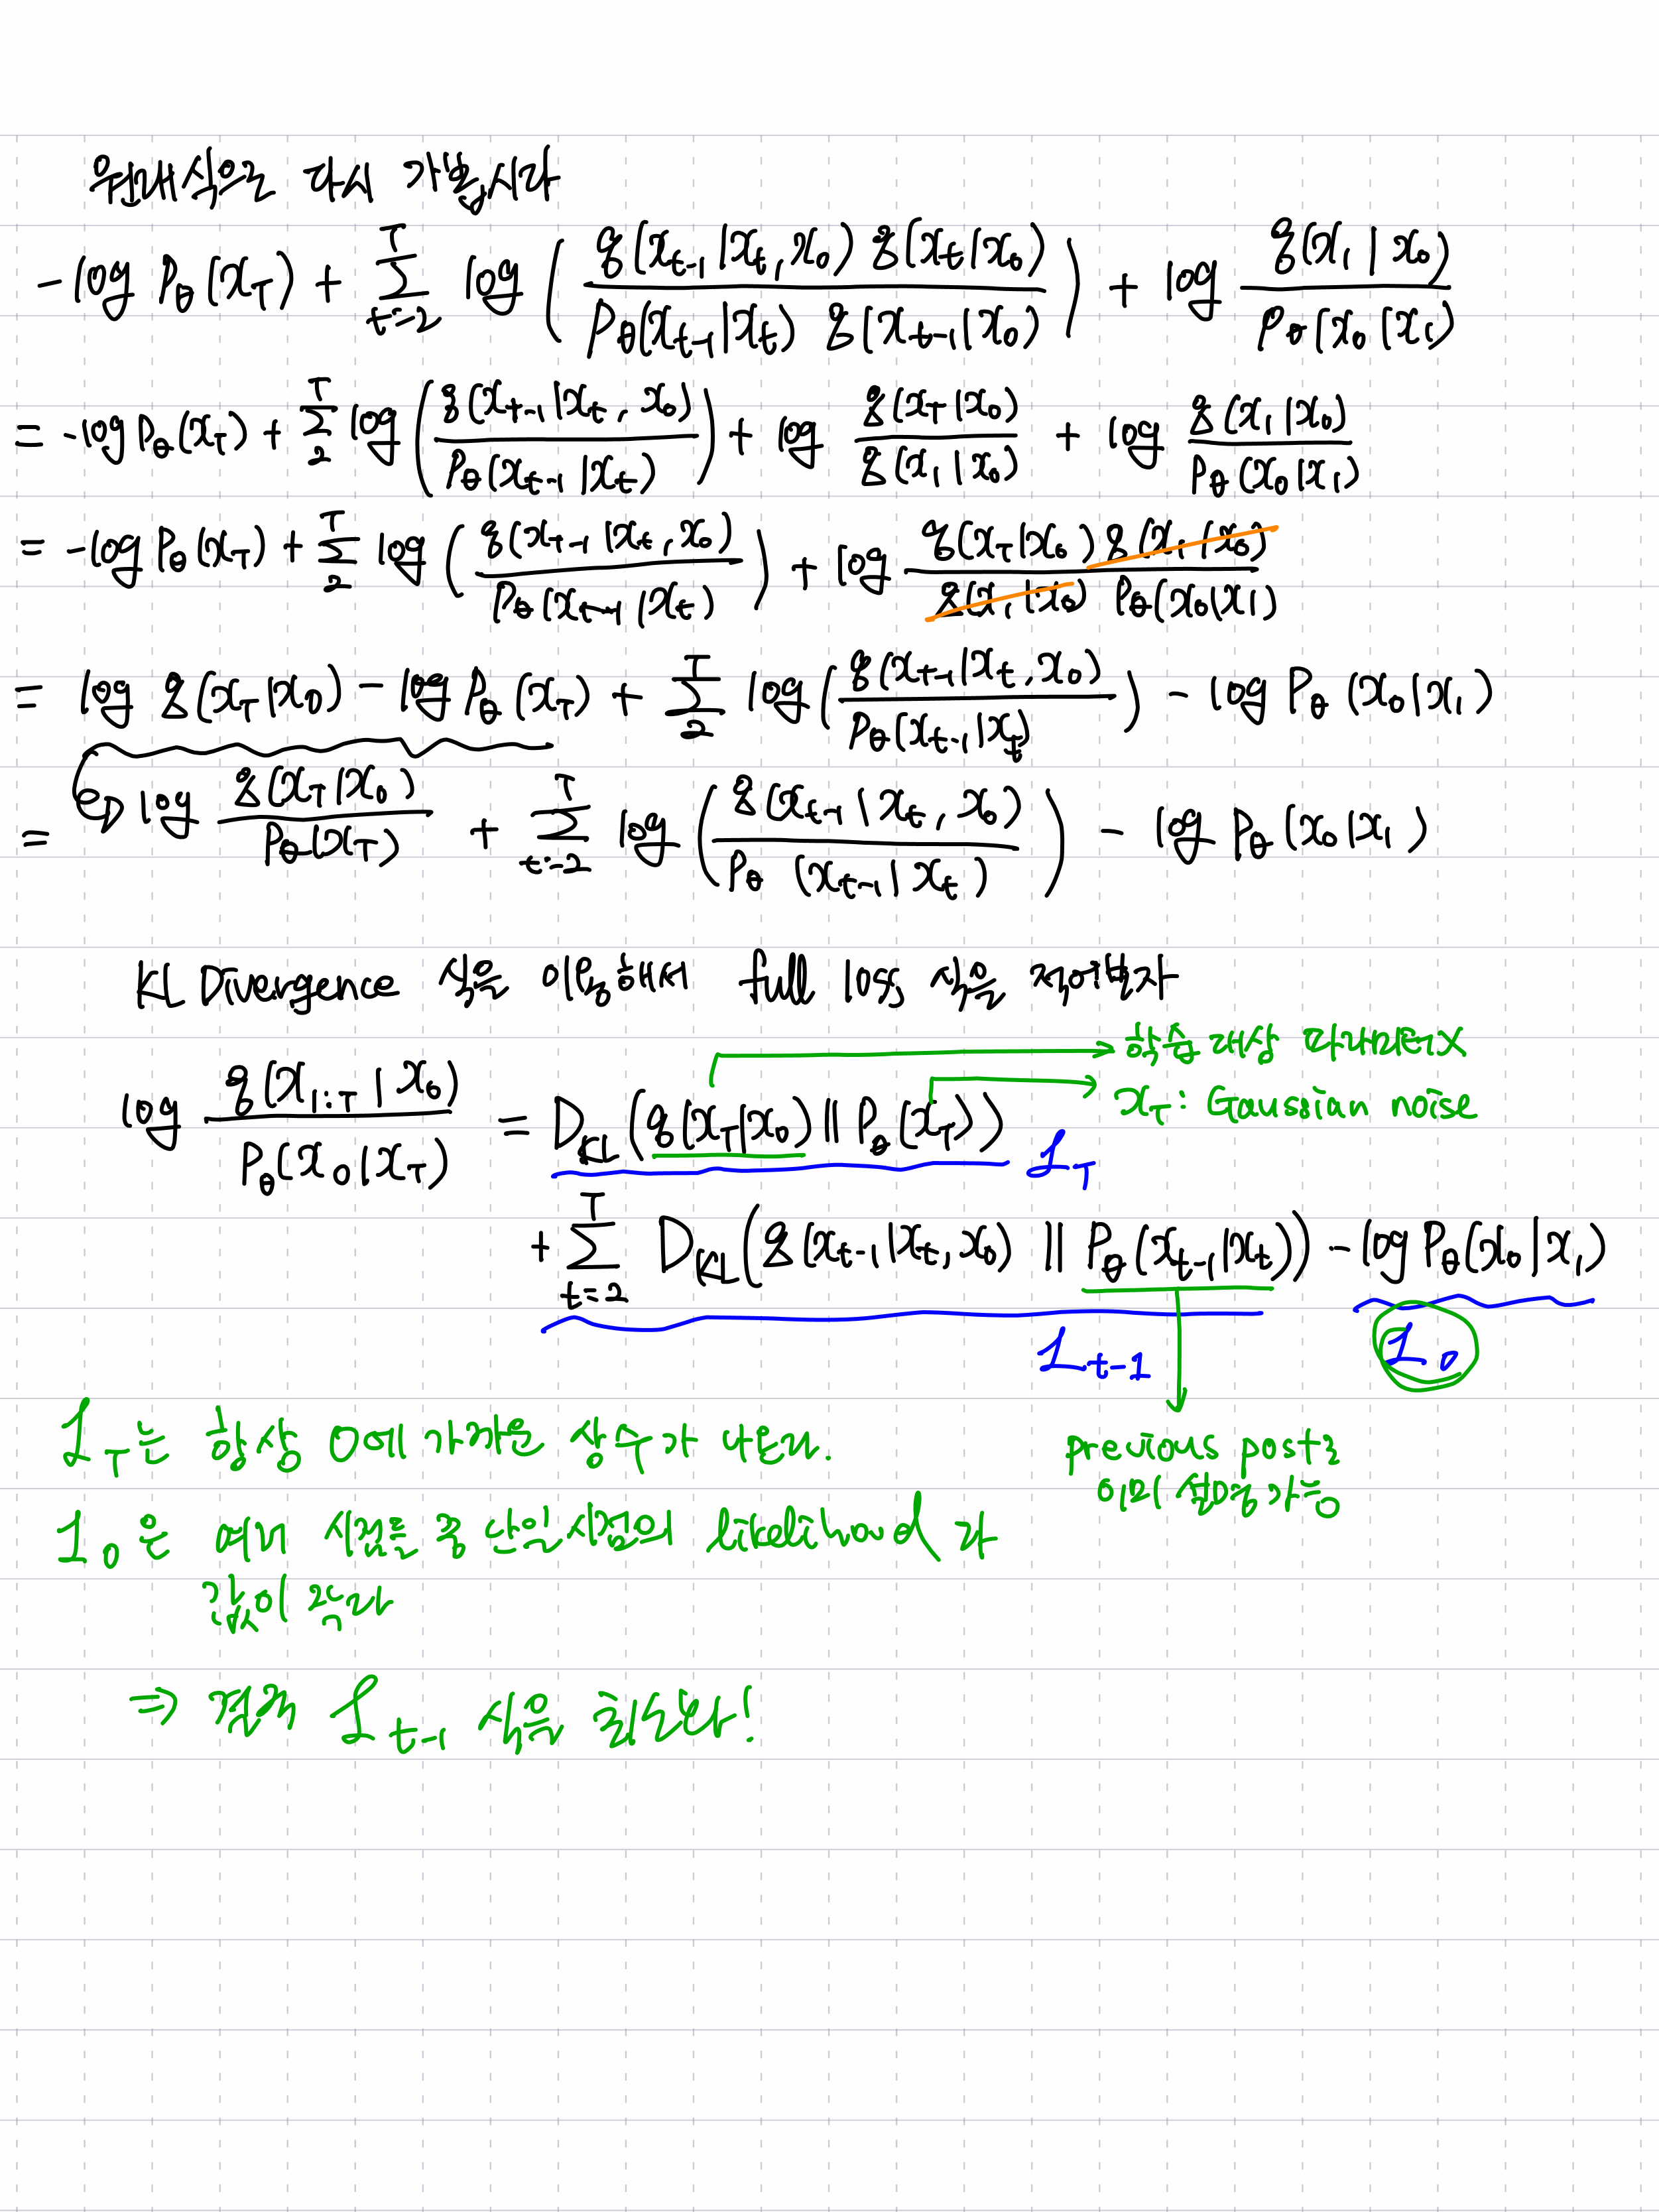 위에식으로 다시 가봅시다
-log Pθ(x_T) + Σ_{t=2}^{T} log ( q(x_{t-1}|x_t, x_0) q(x_t|x_0) / Pθ(x_{t-1}|x_t) q(x_{t-1}|x_0) ) + log q(x_1|x_0) / Pθ(x_0|x_1)
= -log Pθ(x_T) + Σ_{2}^{T} log ( q(x_{t-1}|x_t, x_0) / Pθ(x_{t-1}|x_t) ) + log q(x_T|x_0) / q(x_1|x_0) + log q(x_1|x_0) / Pθ(x_0|x_1)
= -log Pθ(x_T) + Σ_{2}^{T} log ( q(x_{t-1}|x_t, x_0) / Pθ(x_{t-1}|x_t) ) + log q(x_T|x_0) q(x_1|x_0) / q(x_1|x_0) Pθ(x_0|x_1)
= log q(x_T|x_0) - log Pθ(x_T) + Σ_{2}^{T} log ( q(x_{t-1}|x_t, x_0) / Pθ(x_{t-1}|x_t) ) - log Pθ(x_0|x_1)
= log q(x_T|x_0) / Pθ(x_T) + Σ_{t=2}^{T} log ( q(x_{t-1}|x_t, x_0) / Pθ(x_{t-1}|x_t) ) - log Pθ(x_0|x_1)
KL Divergence 식을 이용해서 full loss 식을 적어보자
학습 대상 파라미터 X
x_T: Gaussian noise
log q(x_{1:T}|x_0) / Pθ(x_0|x_T) = D_KL(q(x_T|x_0) || Pθ(x_T)) L_T
+ Σ_{t=2}^{T} D_KL(q(x_{t-1}|x_t, x_0) || Pθ(x_{t-1}|x_t)) - log Pθ(x_0|x_1)
L_{t-1} L_0
L_T는 항상 0에 가까운 상수가 나온다.
previous post로
이미 설명가능
L_0은 여러 시점들 중 단일시점의 likelihood라
값이 작다
⇒ 결국 L_{t-1} 식을